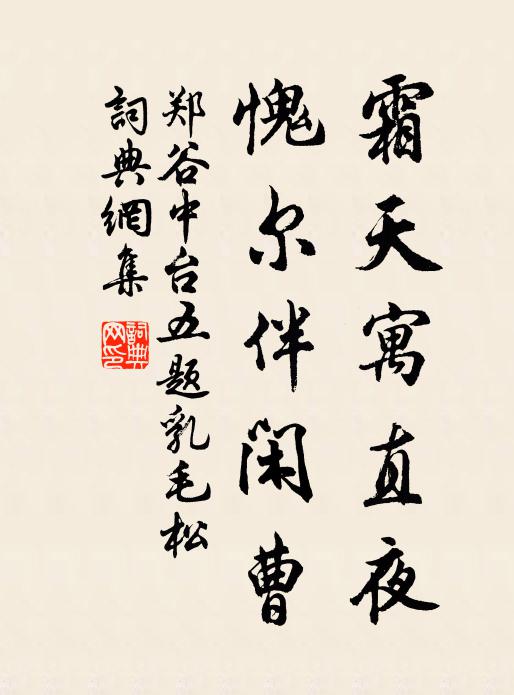 霜天寓直夜
愧尔伴闲曹
郑谷中台五题乳毛松
詞典網集
詞典网印